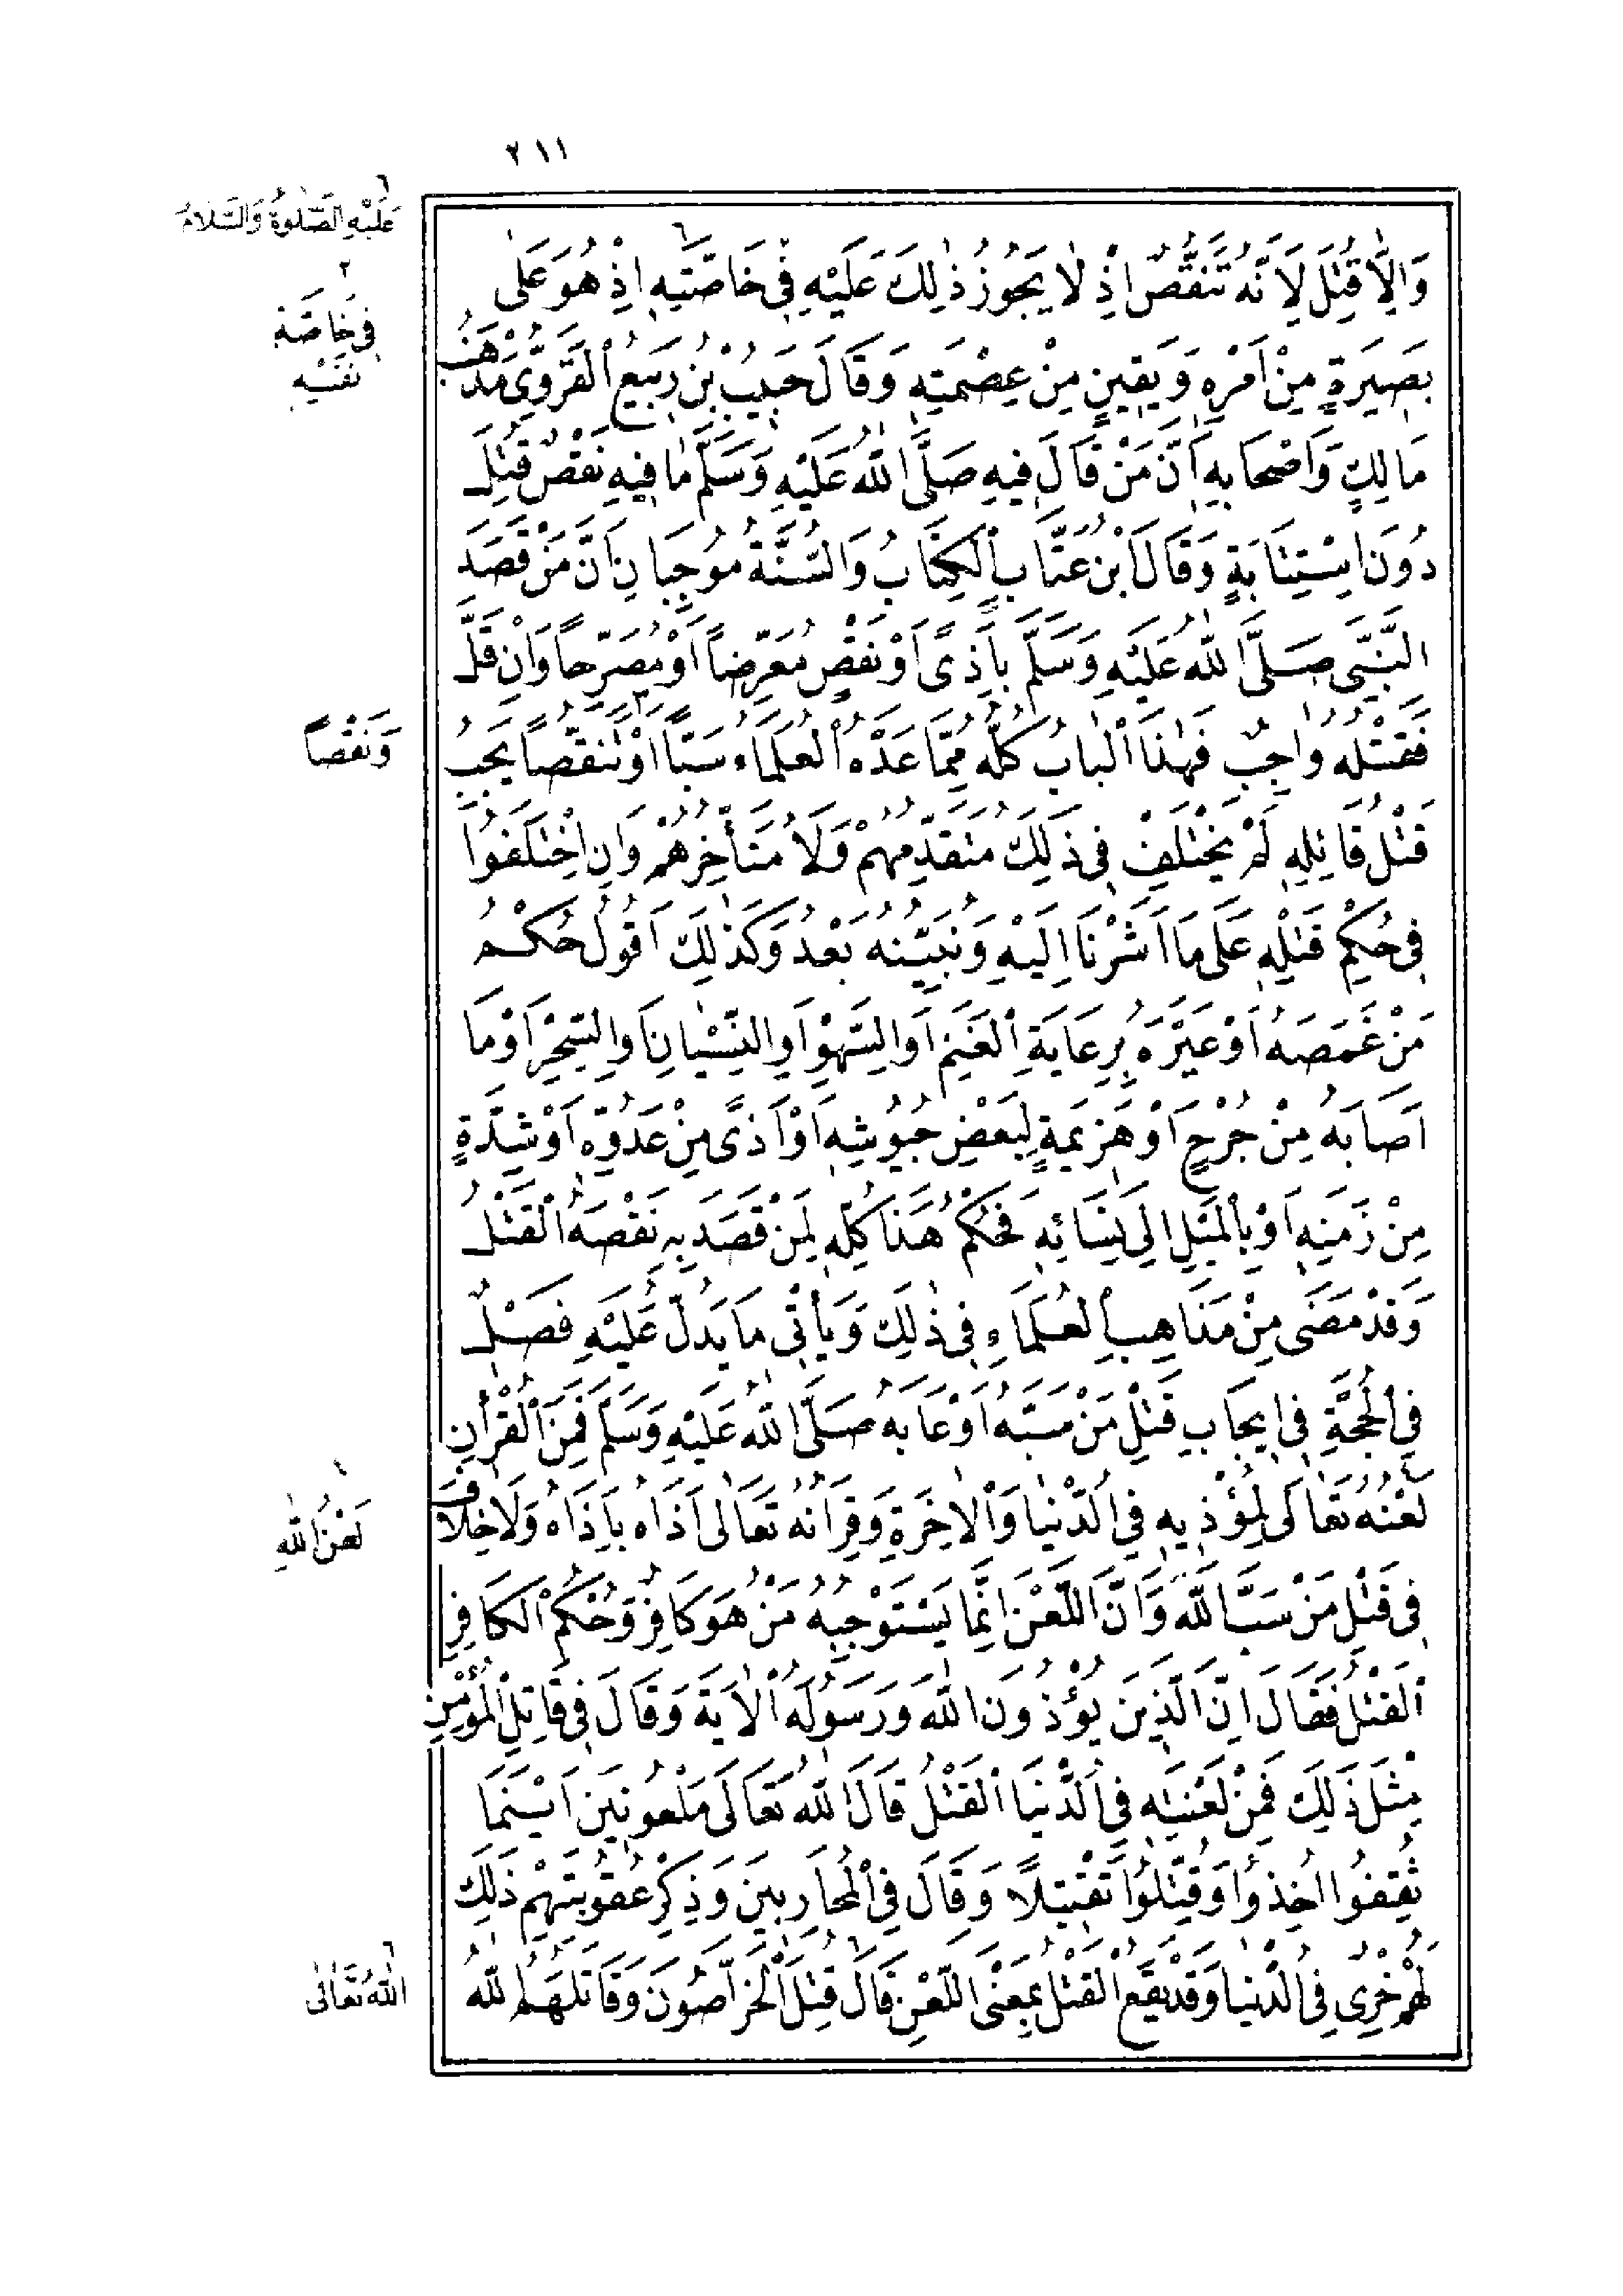 ٢١١
وَاِلَّا قُتِلَ لِاَنَّهُ تَنَقُّصٌ اِذْ لَا يَجُوزُ ذٰلِكَ عَلَيْهِ فِي خَاصَّتِهِ اِذْ هُوَ عَلٰى
بَصِيرَةٍ مِنْ اَمْرِهِ وَيَقِينٍ مِنْ عِصْمَتِهِ وَقَالَ حَبِيبُ بْنُ رَبِيعٍ الْقَرَوِىُّ مَذْهَبُ
مَالِكٍ وَاَصْحَابِهِ اَنَّ مَنْ قَالَ فِيهِ صَلَّى اللّٰهُ عَلَيْهِ وَسَلَّمَ مَا فِيهِ نَقْصٌ قُتِلَ
دُونَ اسْتِتَابَةٍ وَقَالَ ابْنُ عَتَّابٍ اَلْكِتَابُ وَالسُّنَّةُ مُوجِبَانِ اَنَّ مَنْ قَصَدَ
النَّبِىَّ صَلَّى اللّٰهُ عَلَيْهِ وَسَلَّمَ بِاَذًى اَوْ نَقْصٍ مُعَرِّضًا اَوْ مُصَرِّحًا وَاِنْ قَلَّ
فَقَتْلُهُ وَاجِبٌ فَهٰذَا الْبَابُ كُلُّهُ مِمَّا عَدَّهُ الْعُلَمَاءُ سَبًّا اَوْ تَنَقُّصًا يَجِبُ
قَتْلُ قَائِلِهِ لَمْ يَخْتَلِفْ فِي ذَلِكَ مُتَقَدِّمُهُمْ وَلَا مُتَأَخِّرُهُمْ وَاِنِ اخْتَلَفُوا
فِي حُكْمِ قَتْلِهِ عَلَى مَا اَشَرْنَا اِلَيْهِ وَنُبَيِّنُهُ بَعْدُ وَكَذٰلِكَ اَقُولُ حُكْمُ
مَنْ غَمَصَهُ اَوْ عَيَّرَهُ بِرِعَايَةِ الْغَنَمِ اَوِ السَّهْوِ اَوِ النِّسْيَانِ اَوِ السِّحْرِ اَوْ مَا
اَصَابَهُ مِنْ جُرْحٍ اَوْ هَزِيمَةٍ لِبَعْضِ جُيُوشِهِ اَوْ اَذًى مِنْ عَدُوِّهِ اَوْ شِدَّةٍ
مِنْ زَمَنِهِ اَوْ بِالْمَيْلِ اِلَى نِسَائِهِ فَحُكْمُ هَذَا كُلِّهِ لِمَنْ قَصَدَ بِهِ نَقْصَهُ الْقَتْلُ
وَقَدْ مَضَى مِنْ مَذَاهِبِ الْعُلَمَاءِ فِي ذٰلِكَ وَيَأْتِى مَا يَدُلُّ عَلَيْهِ فَصْلٌ
فِي الْحُجَّةِ فِي اِيجَابِ قَتْلِ مَنْ سَبَّهُ اَوْ عَابَهُ صَلَّى اللّٰهُ عَلَيْهِ وَسَلَّمَ فَمِنَ الْقُرْاٰنِ
لَعْنُهُ تَعَالٰى لِمُؤْذِيهِ فِي الدُّنْيَا وَالْاٰخِرَةِ وَقِرَانُهُ تَعَالٰى اَذَاهُ بِاَذَاهُ وَلَا خِلَافَ
فِي قَتْلِ مَنْ سَبَّ اللّٰهَ وَاَنَّ اللَّعْنَ اِنَّمَا يَسْتَوْجِبُهُ مَنْ هُوَ كَافِرٌ وَحُكْمُ الْكَافِرِ
اَلْقَتْلُ فَقَالَ اِنَّ الَّذِينَ يُؤْذُونَ اللّٰهَ وَرَسُولَهُ الْاٰيَةَ وَقَالَ فِي قَاتِلِ الْمُؤْمِنِ
مِثْلَ ذَلِكَ فَمِنْ لَعْنَتِهِ فِي الدُّنْيَا اَلْقَتْلُ قَالَ اللّٰهُ تَعَالَى مَلْعُونِينَ اَيْنَمَا
ثُقِفُوا اُخِذُوا وَقُتِّلُوا تَقْتِيلًا وَقَالَ فِي الْمُحَارِبِينَ وَذِكْرِ عُقُوبَتِهِمْ ذَلِكَ
لَهُمْ خِزْىٌ فِي الدُّنْيَا وَقَدْ يَقَعُ الْقَتْلُ بِمَعْنَى اللَّعْنِ قَالَ قُتِلَ الْخَرَّاصُونَ وَقَاتَلَهُمُ اللّٰهُ
٦
عَلَيْهِ الصَّلٰوةُ وَالسَّلَامُ
٢
فِي خَاصَّةِ
نَفْسِهِ
وَنَقْصًا
لَعْنُ اللّٰهِ
٦
اللّٰهُ تَعَالٰى